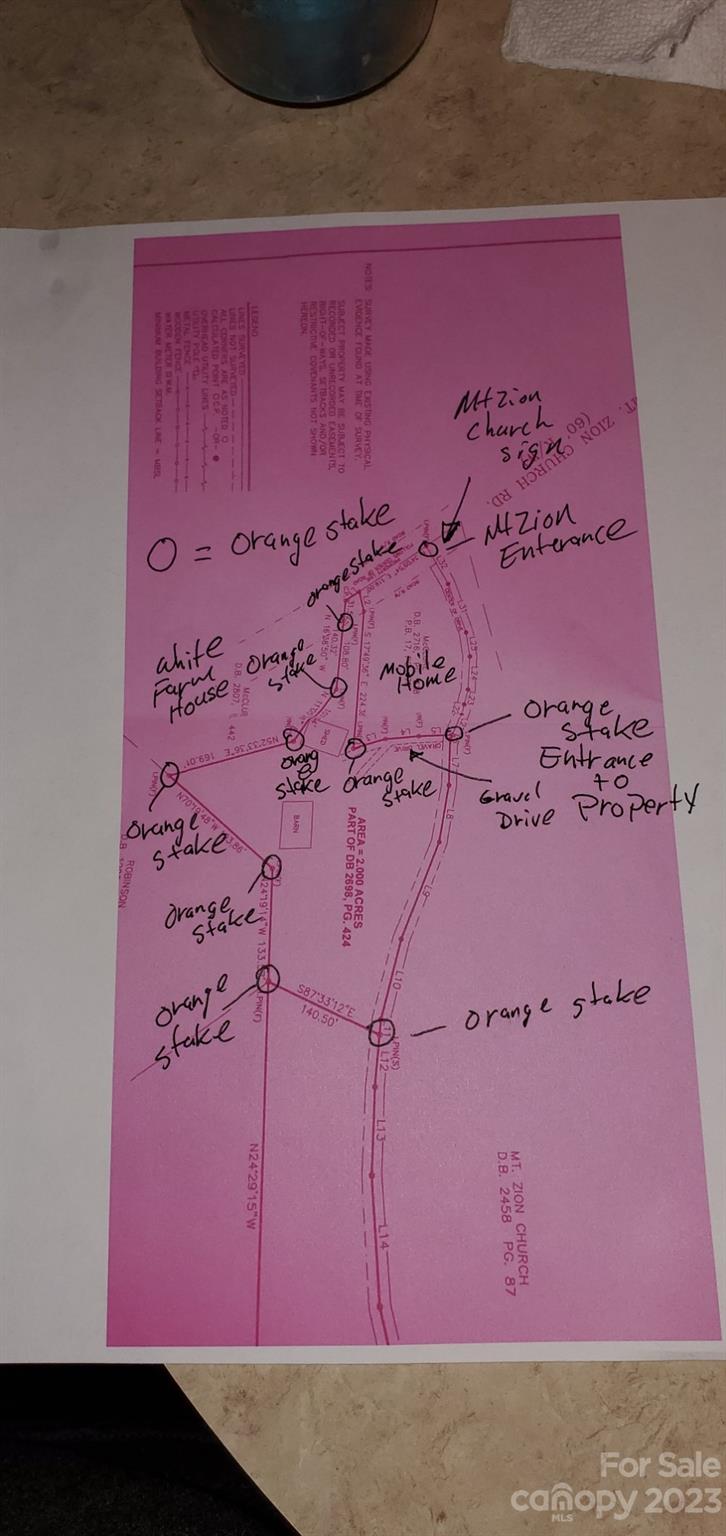 NOTES: SURVEY MADE USING EXISTING PHYSICAL
EVIDENCE FOUND AT TIME OF SURVEY.
SUBJECT PROPERTY MAY BE SUBJECT TO
RECORDED OR UNRECORDED EASEMENTS,
RIGHT-OF-WAYS, SETBACKS AND/OR
RESTRICTIVE COVENANTS NOT SHOWN
HEREON.
LEGEND
LINES SURVEYED
LINES NOT SURVEYED
ALL CORNERS ARE AS NOTED O
CALCULATED POINT O C.P. -OR-
OVERHEAD UTILITY LINES
UTILITY POLE
METAL FENCE
WOODEN FENCE
WATER METER
MINIMUM BUILDING SETBACK LINE = MBSL
MT. ZION CHURCH RD.
(60'
Mt Zion
Church
sign
Mt Zion
Enterance
O = Orange stake
Orange stake
White
Farm
House
Orange
Stake
Mobile
Home
Orange
Stake
Entrance
to
Property
Gravel
Drive
GRAVEL DRIVE
Orange
stake
Orange
stake
Orange
stake
Orange
stake
Orange
stake
Orange stake
S 17°49'36" E 224.3
108.80'
N52°33'36"E 169.01'
D.B. 2807,
442
SHED
BARN
AREA = 2.000 ACRES
PART OF DB 2698, PG. 424
ROBINSON
S87°33'12"E
140.50'
N24°29'15"W
L32
L31
L7
L8
L9
L10
L12
L13
L14
MT. ZION CHURCH
D.B. 2458 PG. 87
For Sale
canopy 2023
MLS